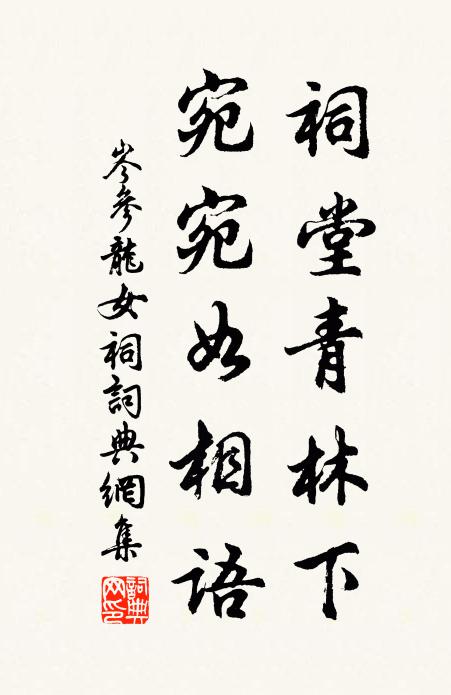 祠堂青林下
宛宛如相語
岑參龍女祠詞典網集
詞典网印